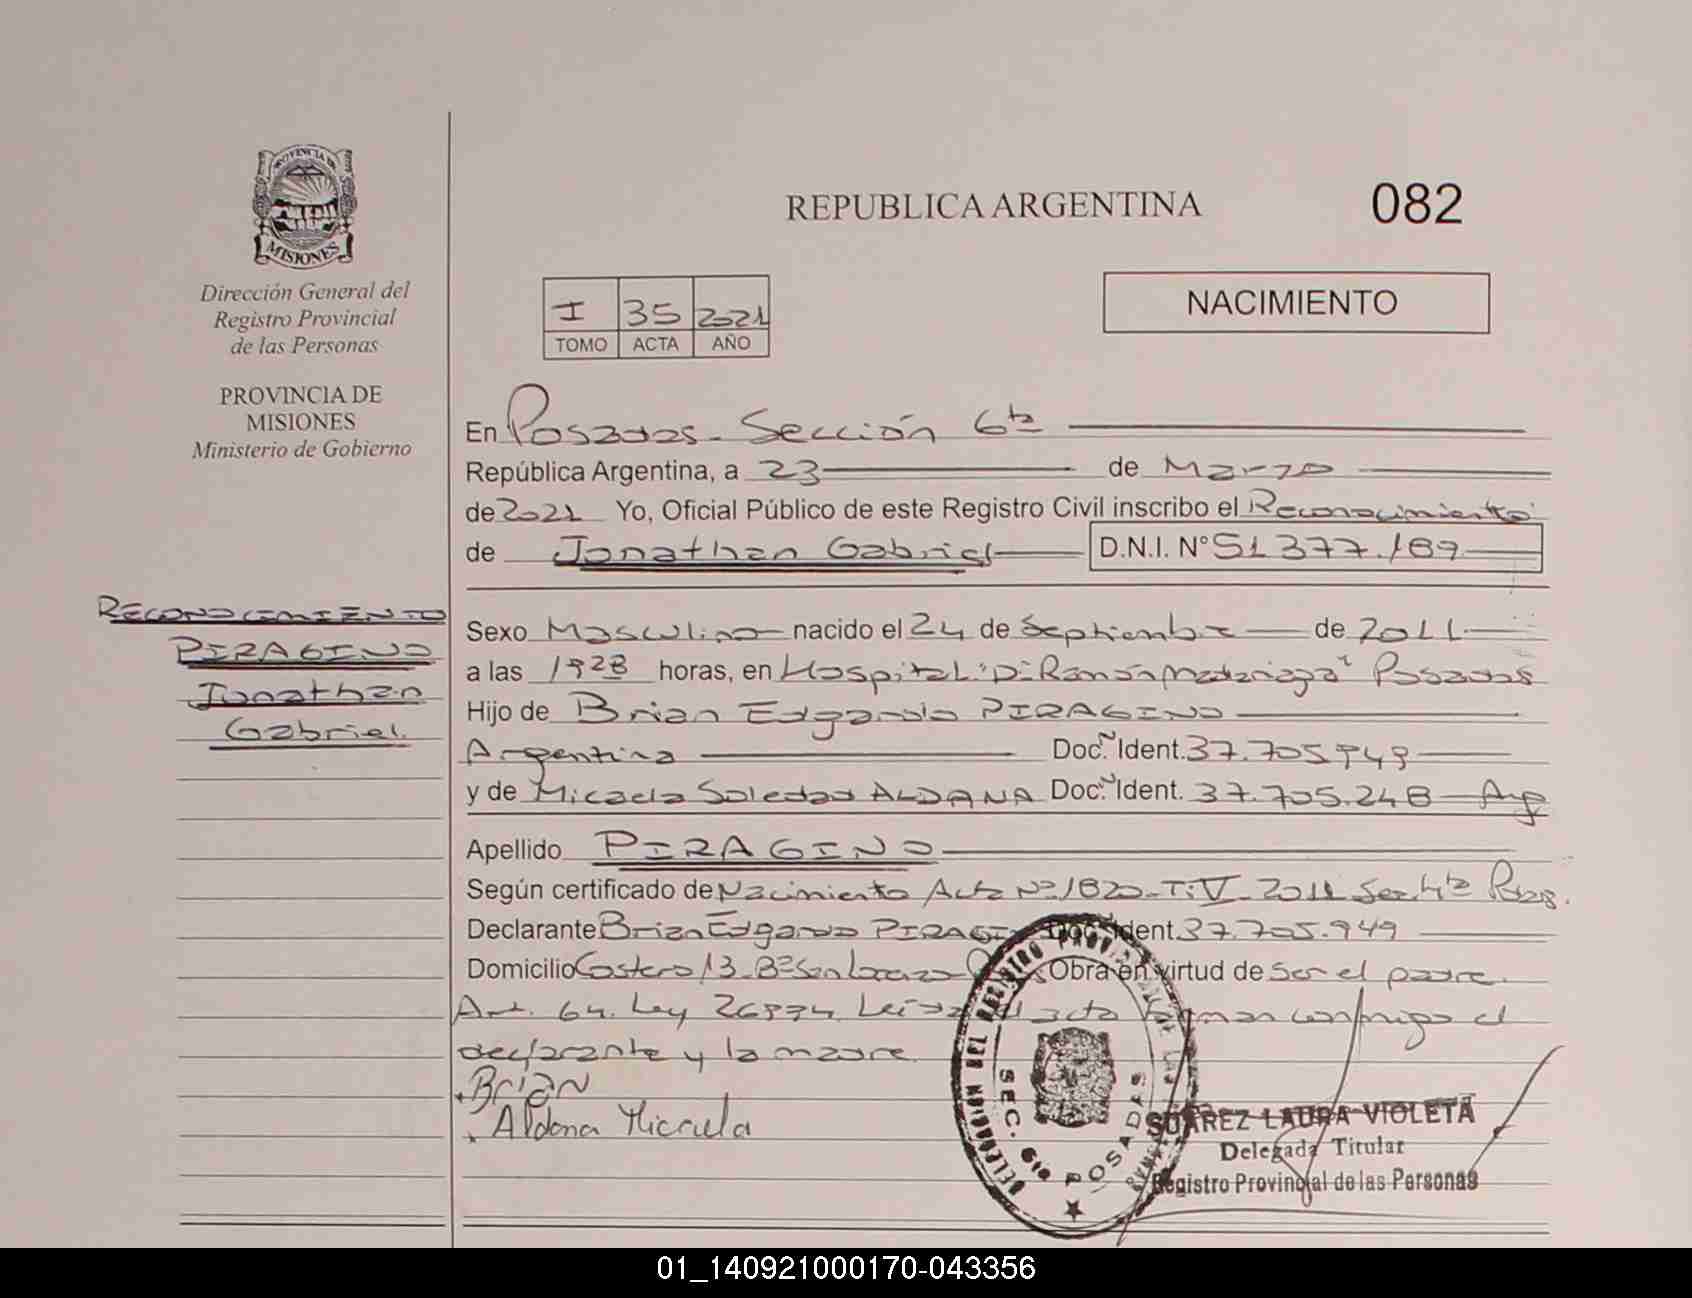 PROVINCIA DE
MISIONES
Dirección General del
Registro Provincial
de las Personas
PROVINCIA DE
MISIONES
Ministerio de Gobierno
RECONOCIMIENTO
PIRAGINO
Jonathan
Gabriel.
REPUBLICA ARGENTINA
082
I 35 2021
TOMO ACTA AÑO
NACIMIENTO
En Posadas - Sección 6ta
República Argentina, a 23 de Marzo
de 2021 Yo, Oficial Público de este Registro Civil inscribo el Reconocimiento
de Jonathan Gabriel D.N.I. N° 51.377.189
Sexo Masculino nacido el 24 de Septiembre de 2011
a las 1928 horas, en Hospital "Dr Ramón Madariaga" Posadas
Hijo de Brian Edgardo PIRAGINO
Argentina Doc. Ident. 37.705.949
y de Micaela Soledad ALDANA Doc. Ident. 37.705.248 - Arg
Apellido PIRAGINO
Según certificado de Nacimiento Acta N° 1820 - T: V - 2011 Sec. 4ta Pdas.
Declarante Brian Edgardo PIRAGINO Doc. Ident. 37.705.949
Domicilio Costero 13 - B° San Lorenzo Obra en virtud de ser el padre.
Art. 64. Ley 26994. Leída el acta firman conmigo el
declarante y la madre.
Brian
Aldana Micaela
DELEGACIÓN DEL REGISTRO PROVINCIAL DE LAS PERSONAS
SEC. 6ta POSADAS
SUAREZ LAURA VIOLETA
Delegada Titular
Registro Provincial de las Personas
01_140921000170-043356